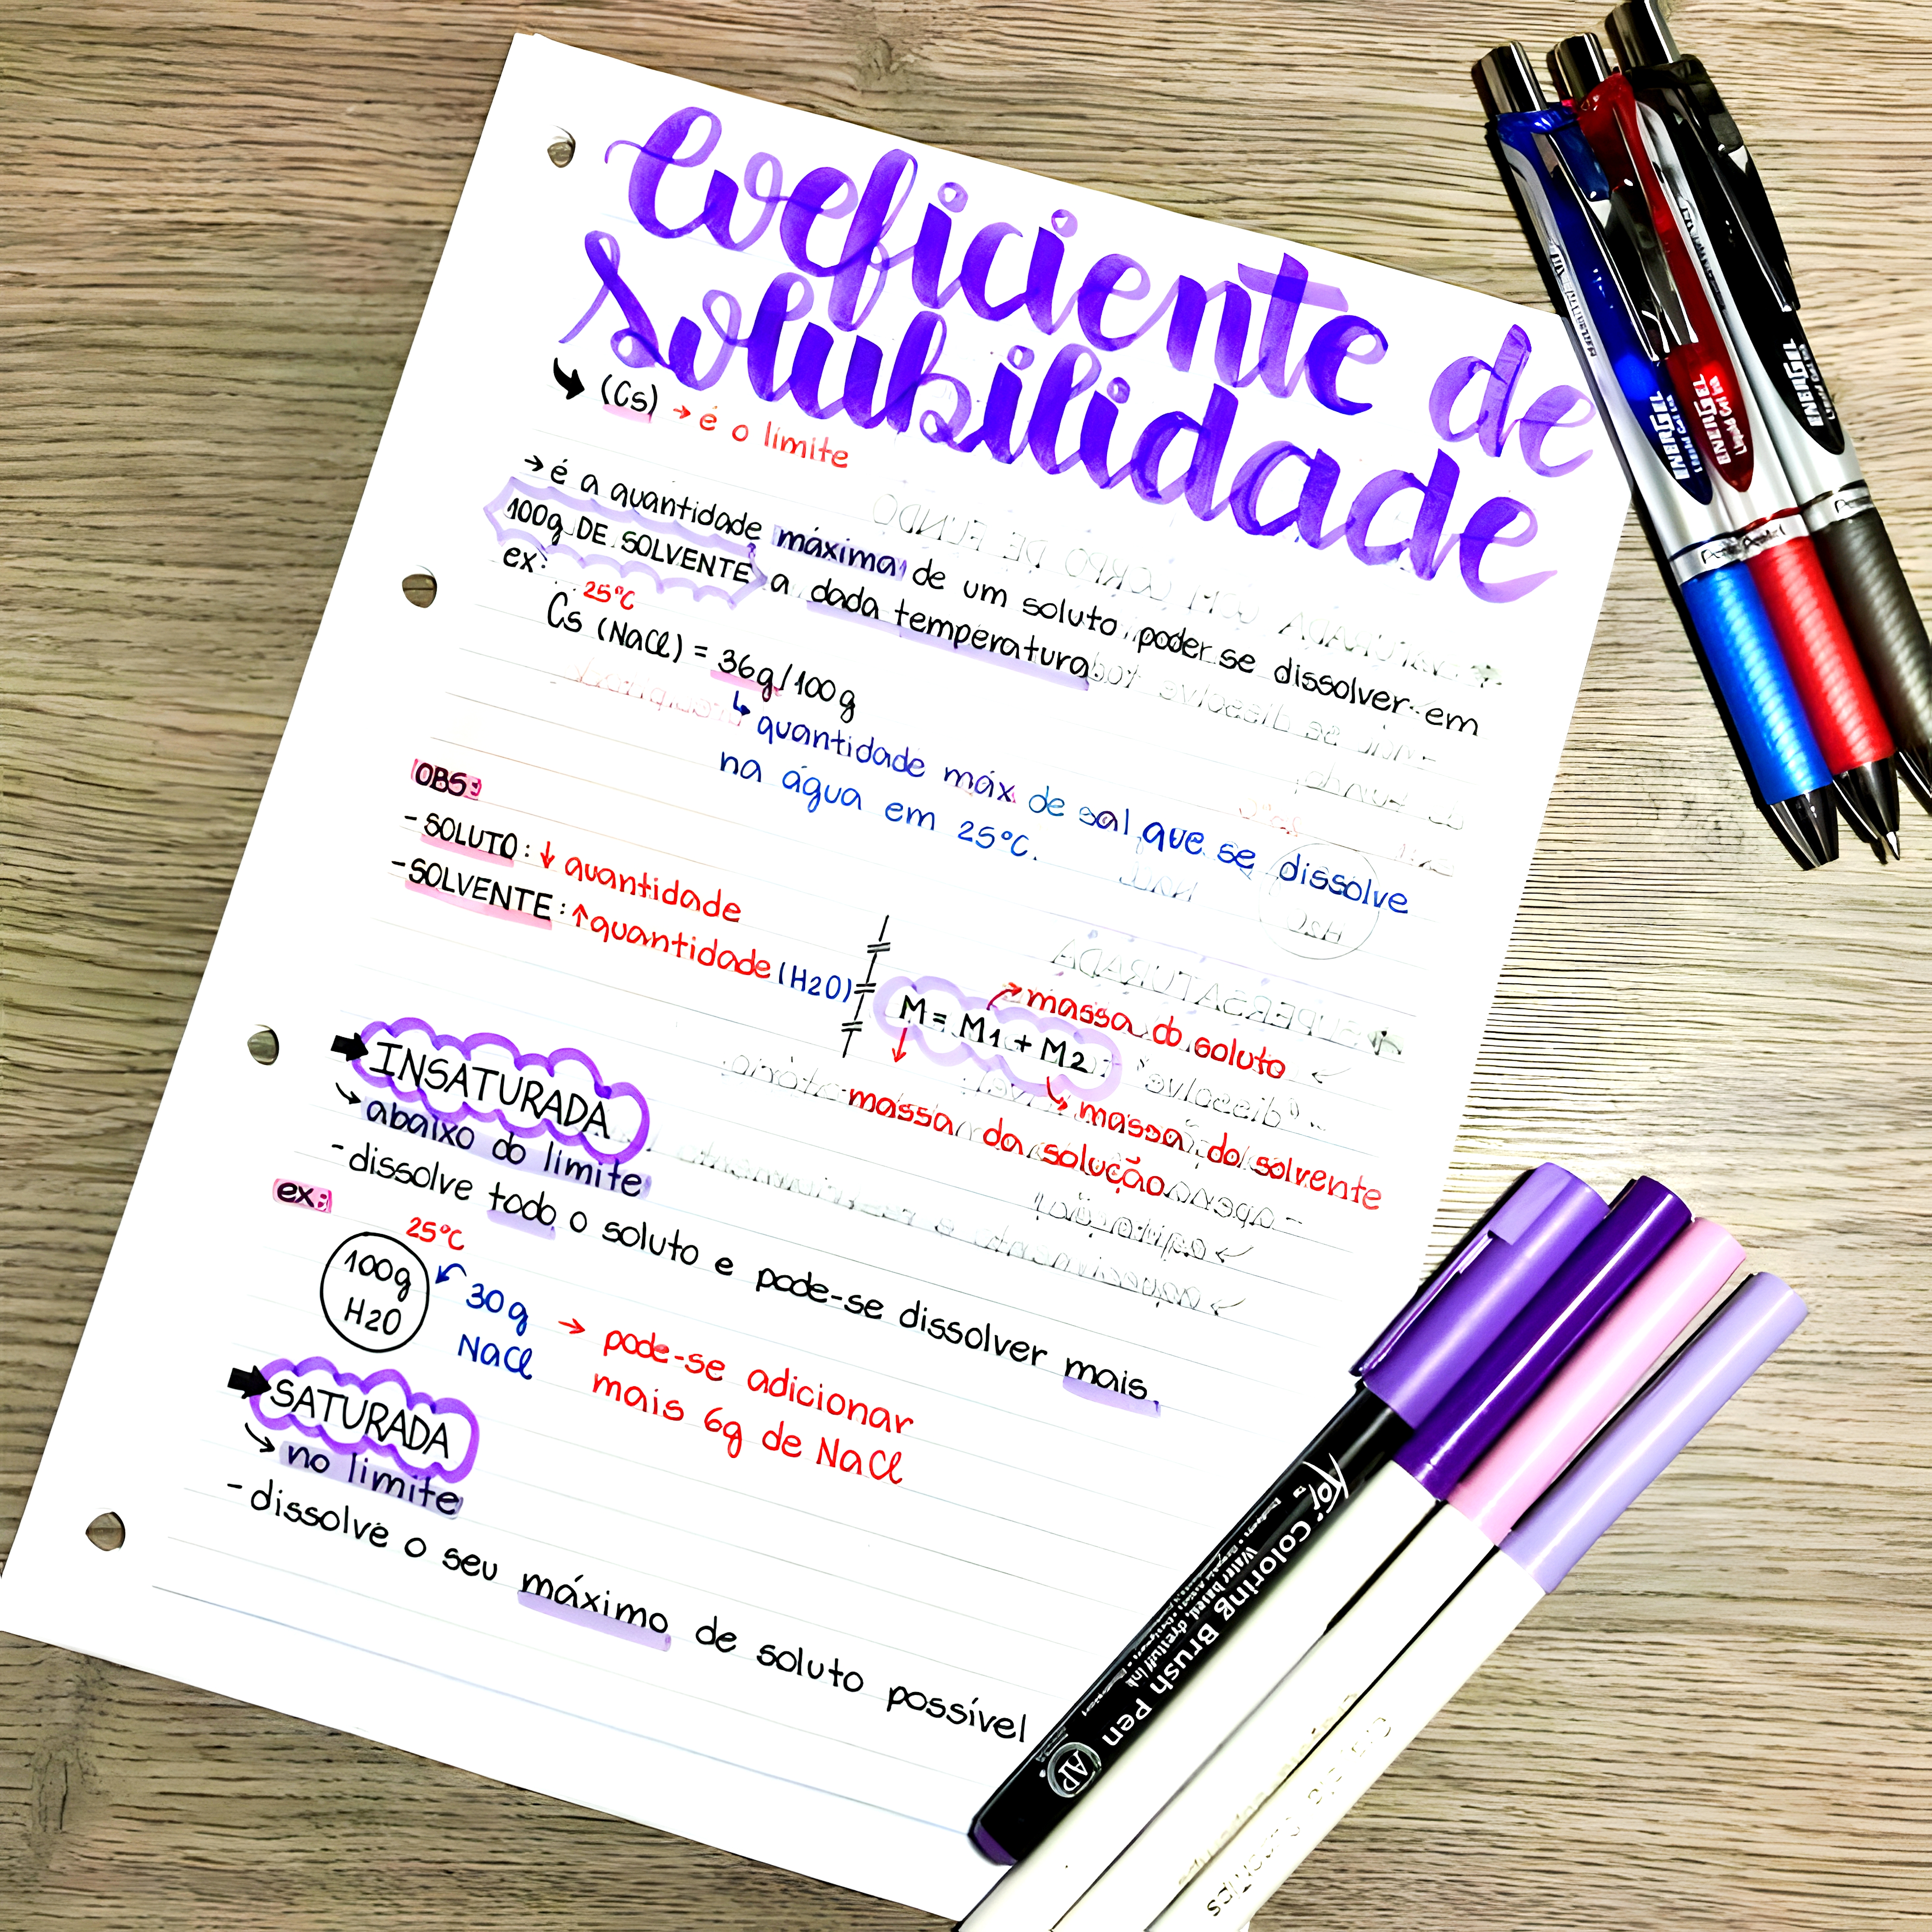 Coeficiente de
Solubilidade
(Cs) → é o limite
→ é a quantidade máxima de um soluto poder se dissolver em
100g DE SOLVENTE a dada temperatura
ex:
25°C
Cs (NaCl) = 36g/100g
↳ quantidade máx. de sal que se dissolve
na água em 25°C.
OBS:
- SOLUTO: ↓ quantidade
- SOLVENTE: ↑ quantidade (H2O)
M = M1 + M2
massa do soluto
massa do solvente
massa da solução
INSATURADA
abaixo do limite
- dissolve todo o soluto e pode-se dissolver mais.
ex:
25°C
100g
H2O
30g
NaCl
→ pode-se adicionar
mais 6g de NaCl
SATURADA
no limite
- dissolve o seu máximo de soluto possível
ENERGEL
Liquid Gel Ink
ENERGEL
Liquid Gel Ink
ENERGEL
Pentel
Pentel
Koi Coloring Brush Pen